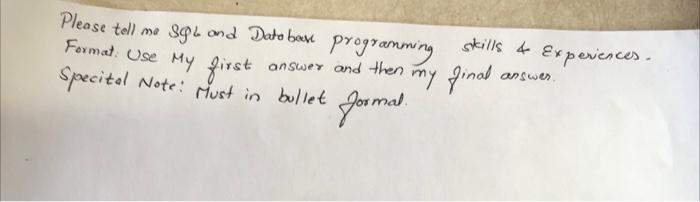 Please tell me SQL and Database programming skills & Experiences.
Format: Use My first answer and then my final answer.
Specital Note: Must in bullet formal.